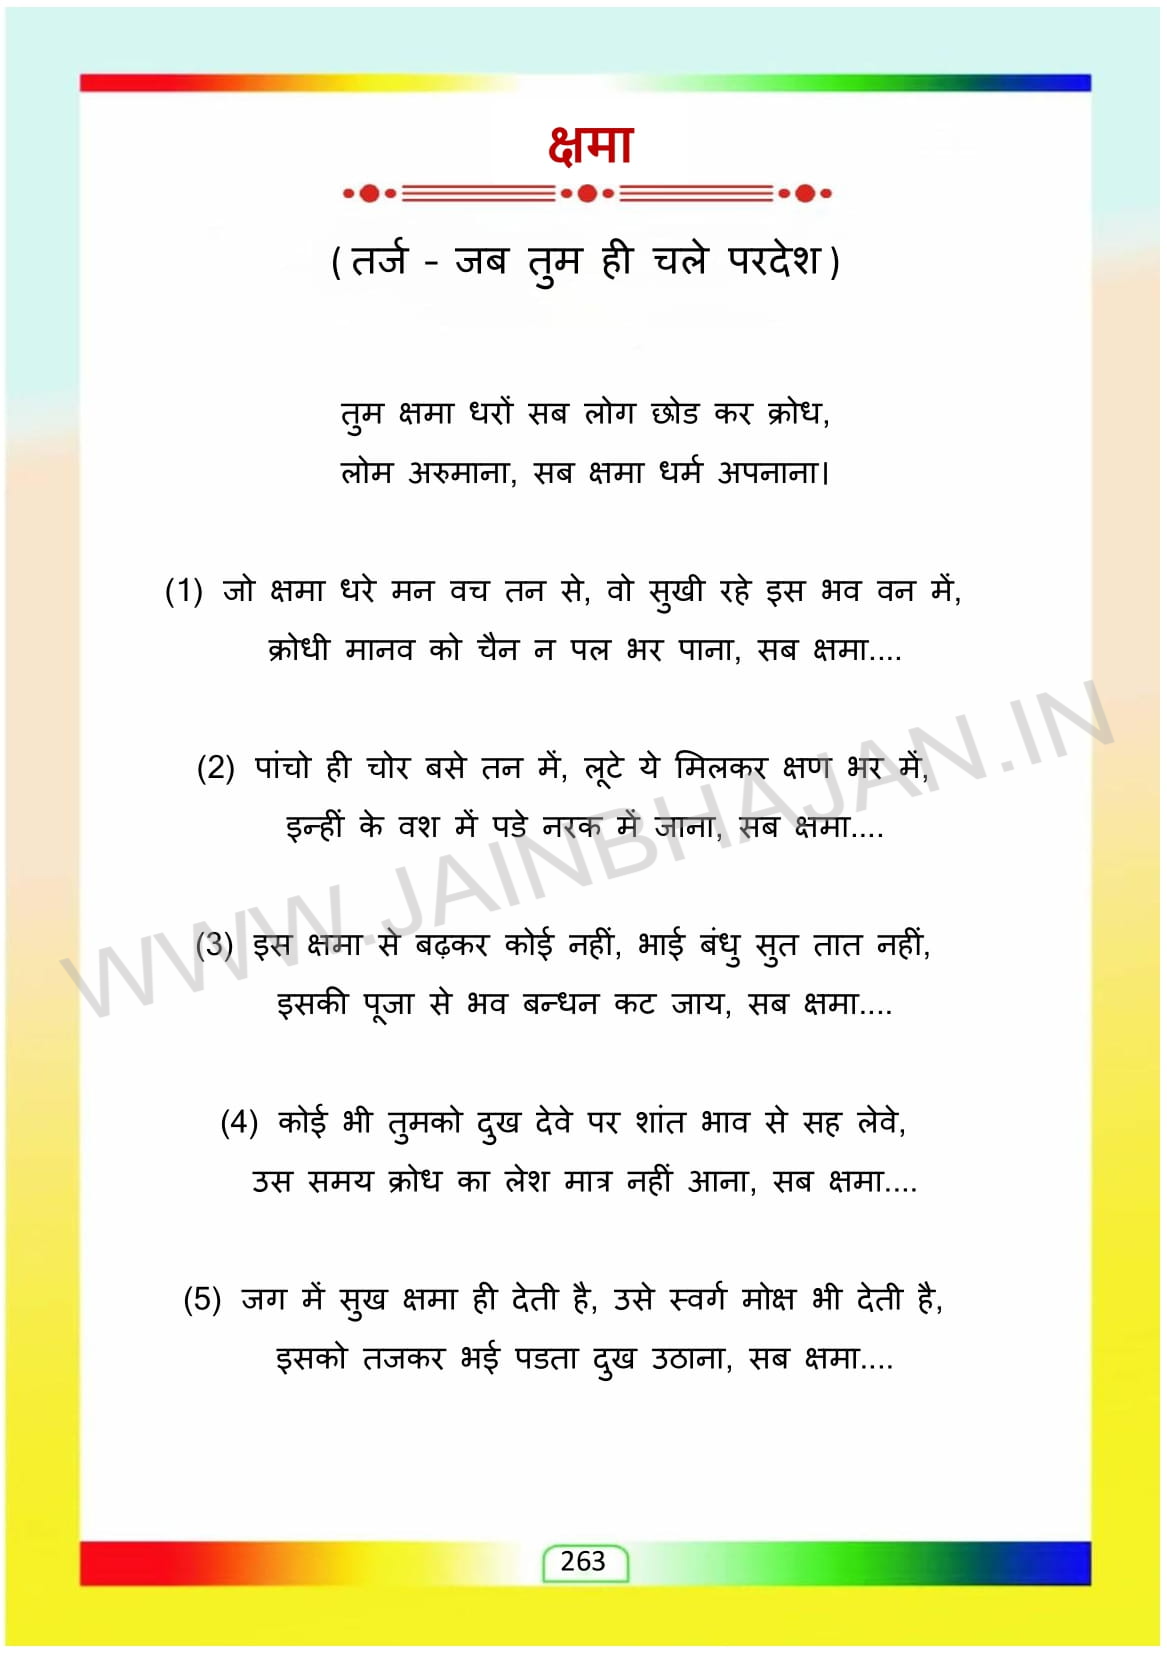 क्षमा
( तर्ज - जब तुम ही चले परदेश )
तुम क्षमा धरों सब लोग छोड कर क्रोध,
लोम अरुमाना, सब क्षमा धर्म अपनाना।
(1) जो क्षमा धरे मन वच तन से, वो सुखी रहे इस भव वन में,
क्रोधी मानव को चैन न पल भर पाना, सब क्षमा....
(2) पांचो ही चोर बसे तन में, लूटे ये मिलकर क्षण भर में,
इन्हीं के वश में पडे नरक में जाना, सब क्षमा....
(3) इस क्षमा से बढ़कर कोई नहीं, भाई बंधु सुत तात नहीं,
इसकी पूजा से भव बन्धन कट जाय, सब क्षमा....
(4) कोई भी तुमको दुख देवे पर शांत भाव से सह लेवे,
उस समय क्रोध का लेश मात्र नहीं आना, सब क्षमा....
(5) जग में सुख क्षमा ही देती है, उसे स्वर्ग मोक्ष भी देती है,
इसको तजकर भई पडता दुख उठाना, सब क्षमा....
WWW.JAINBHAJAN.IN
263